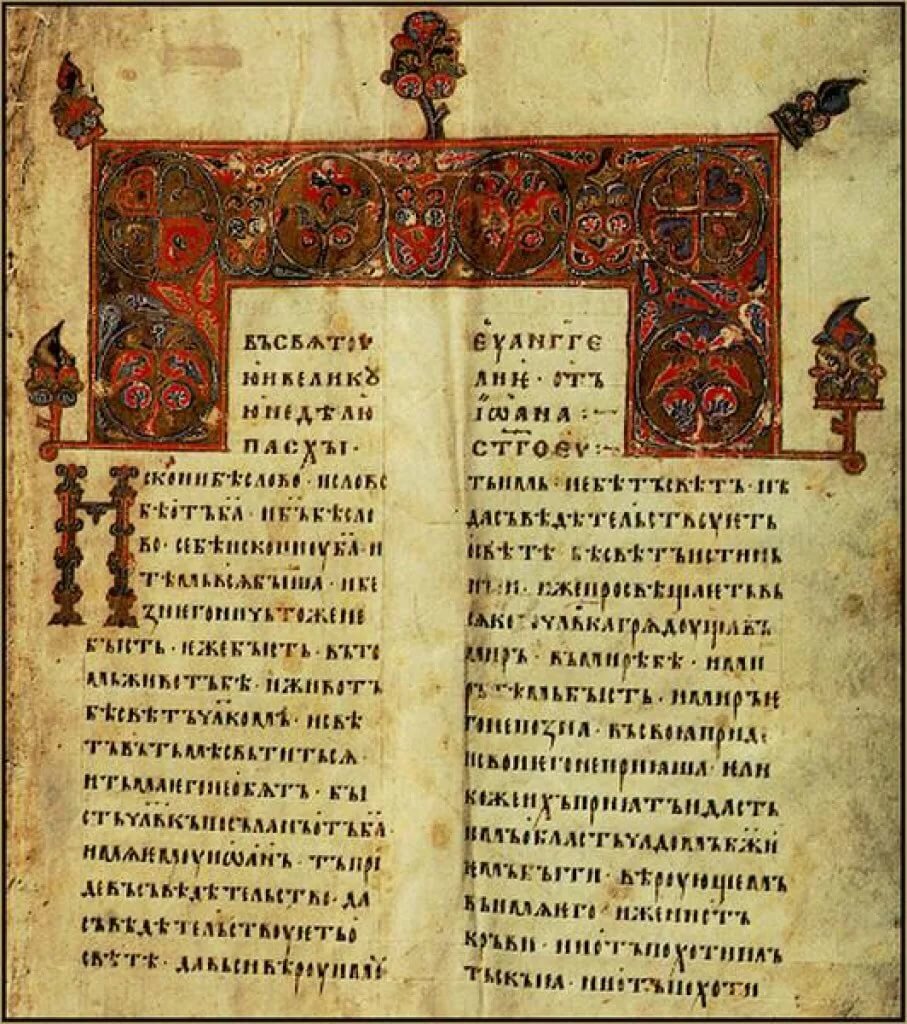 въсвѧтоу
юивелику
юнедѣлю
пасхы ·
еуангг҃е
лиѥ · отъ
іѡана :~
ст҃гоеу :~
Исконибѣслово · ислово
бѣотъба҃ · иб҃ъбѣсло
во · себѣискониуба҃ · и
тѣмьвсѧбыша · ибе
зънегоничьтожене
бысть · ежебысть · вьто
мьживотъбѣ · иживотъ
бѣсвѣтъчл҃комъ · исвѣ
тъвътьмѣсвьтитьсѧ ·
итьмаѥгонеобѧтъ · бы
стьчл҃вкъпосъланъотъба҃ ·
имѧѥмоуиѡанъ · тъпри
девъсъвѣдѣтельство · да
съвѣдѣтельствоуѥтьо
свѣтѣ · давьсивѣроуимоу
тьимь · небѣтъсвѣтъ · нъ
дасъвѣдѣтельствоуѥть
освѣтѣ бѣсвѣтъистинь
ныи · ижепросвѣщаѥтьвь
сѧкогочл҃вкагрѧдоущавъ
миръ · въмирѣбѣ · ими
ръѥмьбысть · имиръѥ
гонепозна · въсвоюприде
исвоиѥгонеприꙗша · ели
кожеихъприꙗтъидасть
имъобластьчадомъбж҃и
ѥмъбыти · вѣроующемъ
въимѧѥго · иженеистъ
кръви · ниотъпохотимъ
тьскыꙗ · ниотъпохоти